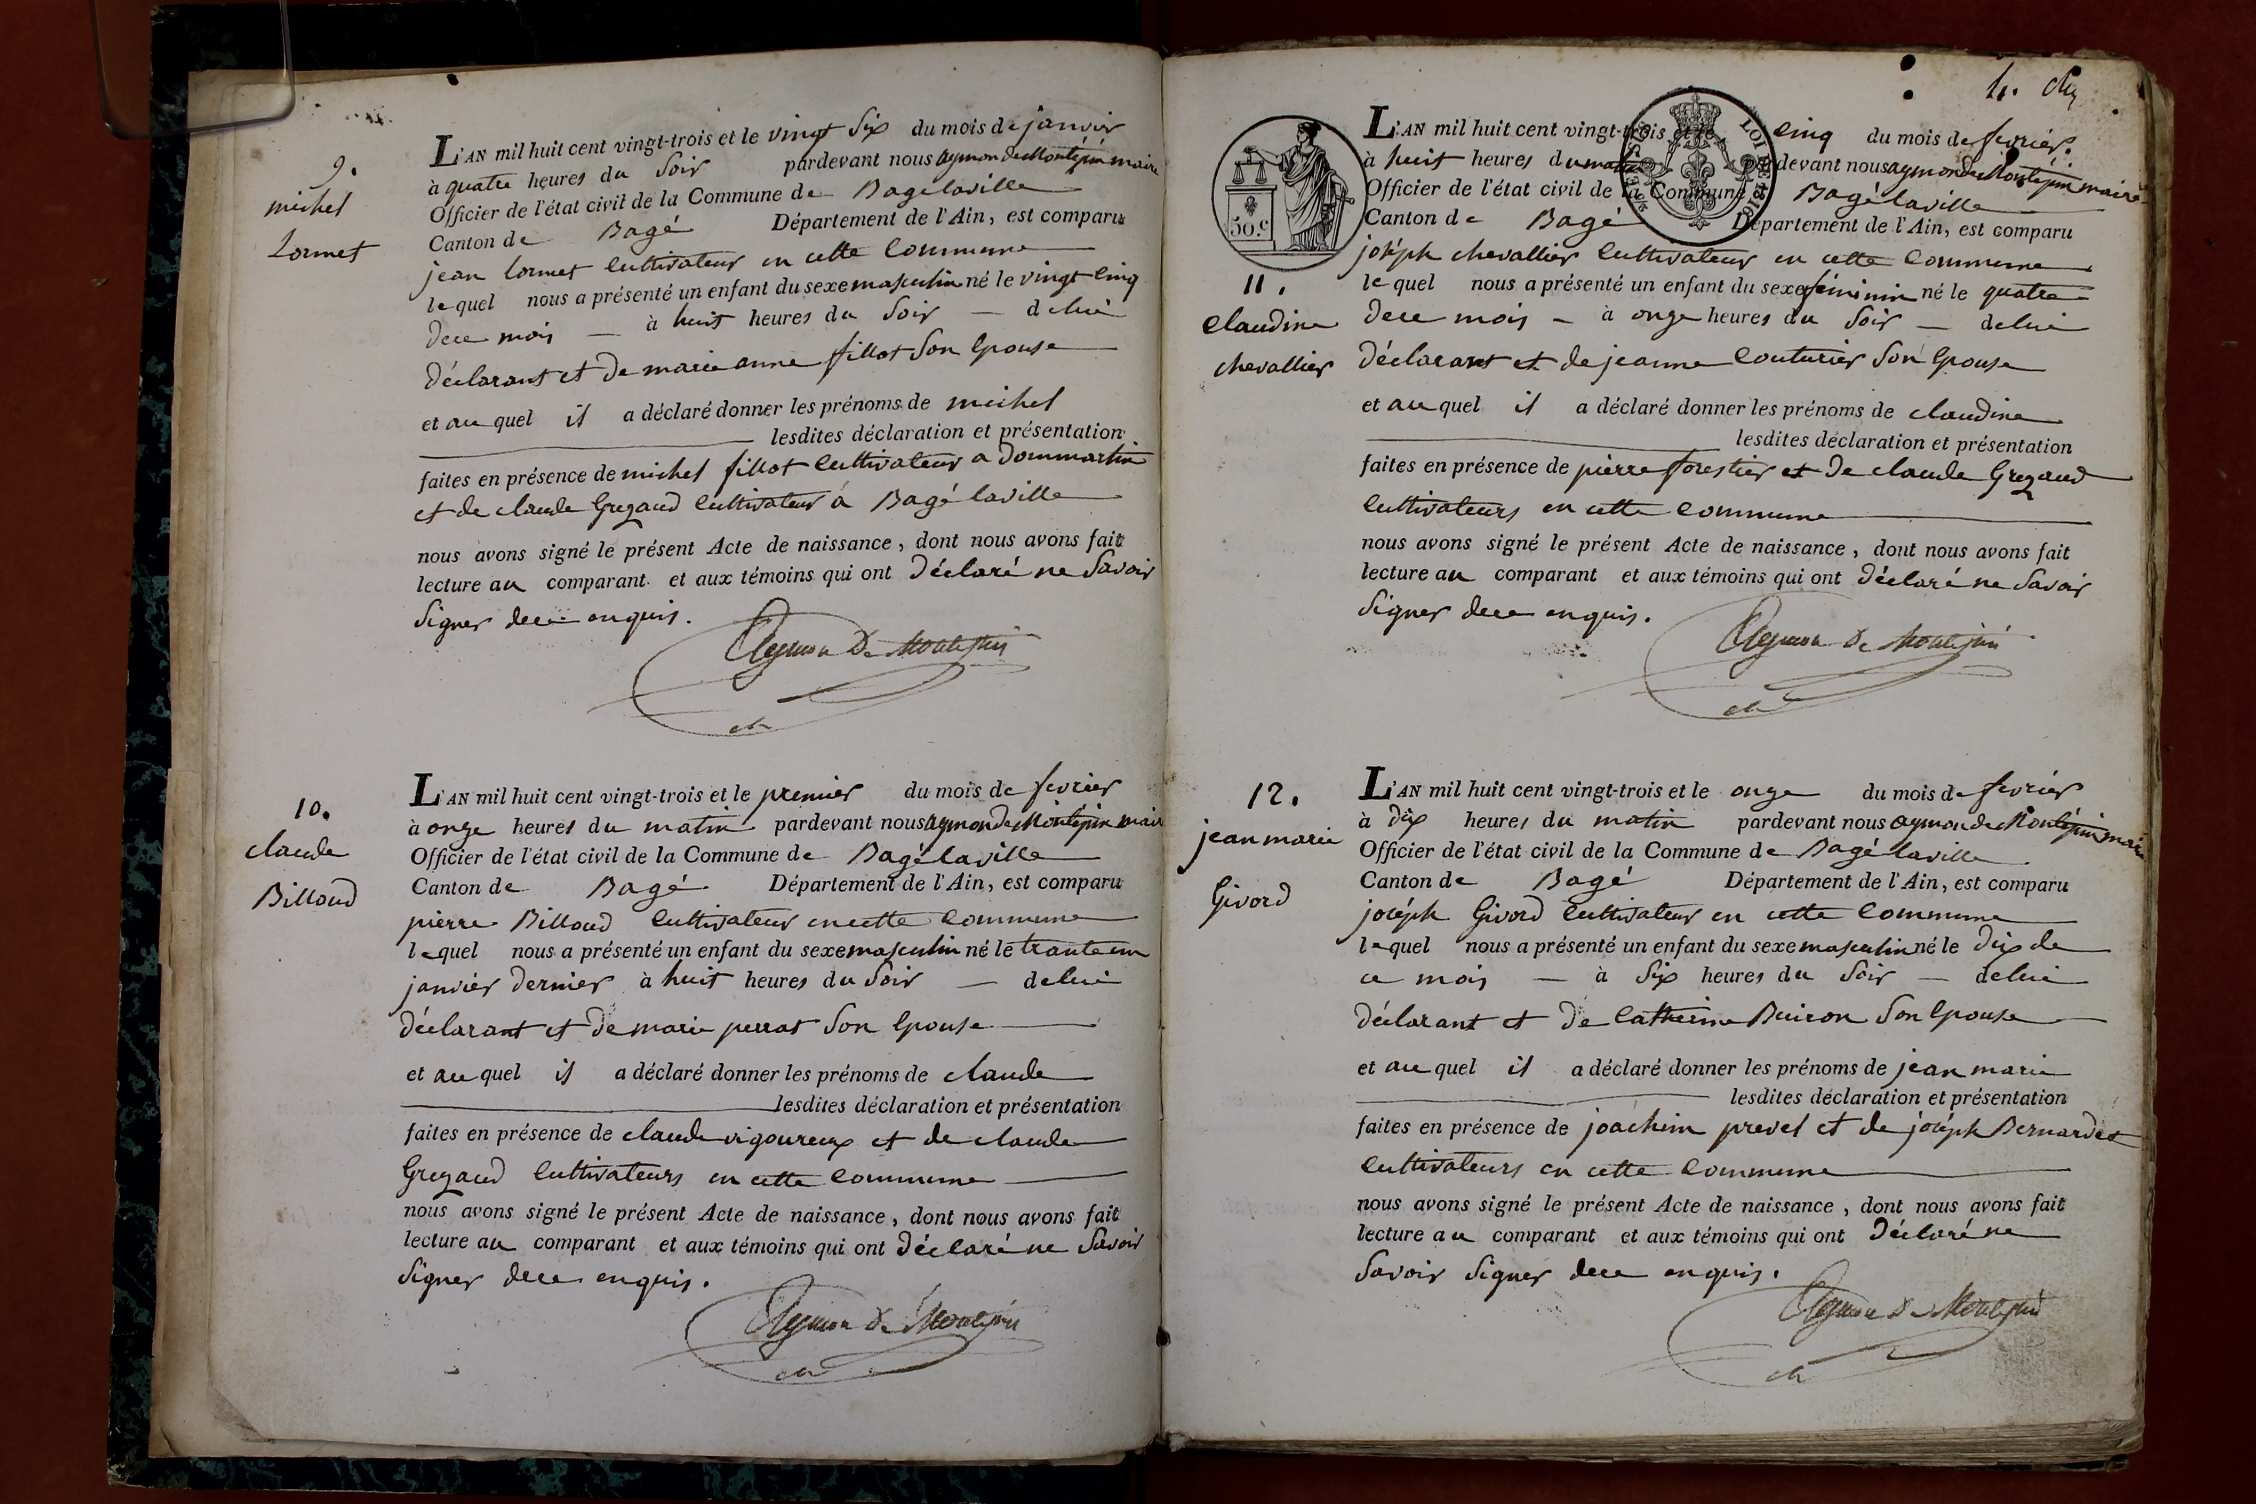 9.
michel
Lormet
L'AN mil huit cent vingt-trois et le vingt Six du mois de janvier
à quatre heures du Soir pardevant nous aymon de Montépin maire
Officier de l'état civil de la Commune de Bagé laville
Canton de Bagé Département de l'Ain, est comparu
jean Lormet Cultivateur en cette Commune
lequel nous a présenté un enfant du sexe masculin né le vingt Cinq
dece mois — à huit heures du Soir — delui
déclarant et de marie anne fillot Son Epouse
et auquel il a déclaré donner les prénoms de michel
lesdites déclaration et présentation
faites en présence de michel fillot Cultivateur a dommartin
et de claude Grezaud Cultivateur à Bagé laville
nous avons signé le présent Acte de naissance, dont nous avons fait
lecture au comparant et aux témoins qui ont déclaré ne Savoir
Signer dece enquis.
Aymon De Montepin
10.
claude
Billoud
L'AN mil huit cent vingt-trois et le premier du mois de fevrier
à onze heures du matin pardevant nous aymon de Montépin maire
Officier de l'état civil de la Commune de Bagé laville
Canton de Bagé Département de l'Ain, est comparu
pierre Billoud Cultivateur en cette Commune
lequel nous a présenté un enfant du sexe masculin né le trante un
janvier dernier à huit heures du Soir — delui
déclarant et de marie perrat Son Epouse
et auquel il a déclaré donner les prénoms de claude
lesdites déclaration et présentation
faites en présence de claude vigoureux et de claude
Grezaud Cultivateurs en cette Commune
nous avons signé le présent Acte de naissance, dont nous avons fait
lecture au comparant et aux témoins qui ont déclaré ne Savoir
Signer dece enquis.
Aymon De Montepin
4.
50.c
11.
Claudine
chevallier
L'AN mil huit cent vingt-trois et le Cinq du mois de fevrier
à huit heures du matin pardevant nous aymon de Montépin maire
Officier de l'état civil de la Commune de Bagé laville
Canton de Bagé Département de l'Ain, est comparu
joséph chevallier Cultivateur en cette Commune
lequel nous a présenté un enfant du sexe féminin né le quatre
dece mois — à onze heures du Soir — delui
déclarant et de jeanne Couturier Son Epouse
et auquel il a déclaré donner les prénoms de claudine
lesdites déclaration et présentation
faites en présence de pierre forestier et de claude Grezaud
Cultivateurs en cette Commune
nous avons signé le présent Acte de naissance, dont nous avons fait
lecture au comparant et aux témoins qui ont déclaré ne Savoir
Signer dece enquis.
Aymon De Montepin
12.
jean marie
Givord
L'AN mil huit cent vingt-trois et le onze du mois de fevrier
à dix heures du matin pardevant nous aymon de Montépin maire
Officier de l'état civil de la Commune de Bagé laville
Canton de Bagé Département de l'Ain, est comparu
joséph Givord Cultivateur en cette Commune
lequel nous a présenté un enfant du sexe masculin né le dix de
ce mois — à Six heures du Soir — delui
déclarant et de Catherine Buiron Son Epouse
et auquel il a déclaré donner les prénoms de jean marie
lesdites déclaration et présentation
faites en présence de joachim prevel et de joséph Bernardet
Cultivateurs en cette Commune
nous avons signé le présent Acte de naissance, dont nous avons fait
lecture au comparant et aux témoins qui ont déclaré ne
Savoir Signer dece enquis.
Aymon De Montepin